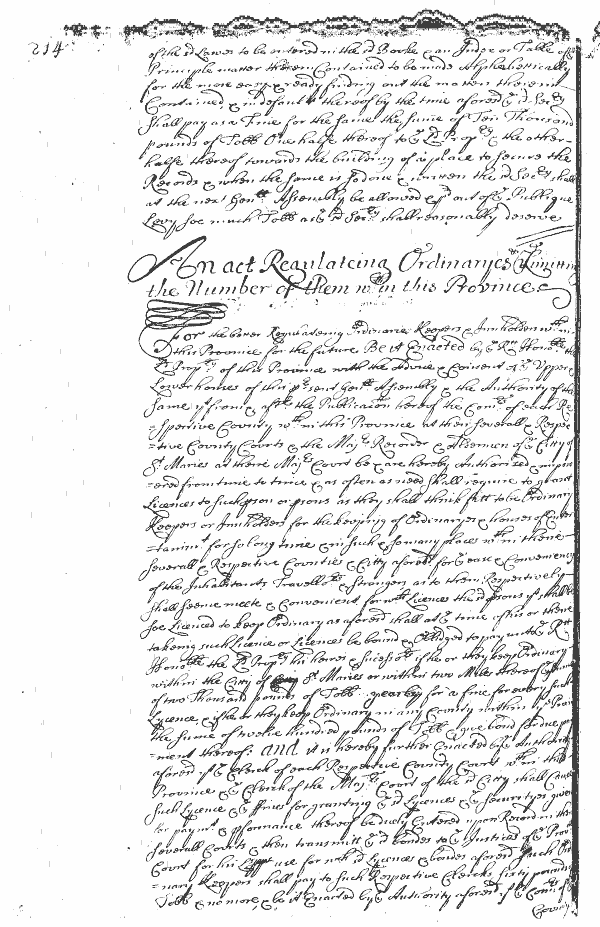 214
of the sd Lawes to be entered in the sd Booke & an Index or Table of ye
Principle matter therein Contained to be made Alphabettically
for the more easy & ready finding out the matter therein
Contained, & in default thereof by the time aforesd ye sd Secry
Shall pay as a Fine for the same the sume of Ten Thousand
pounds of Tobb One halfe thereof to ye Ld Propry & the other
halfe thereof towards the building of a place to secure the
Records & when the same is so done & written the sd Secry shall
at the next Genll Assembly be allowed & pd out of ye Publique
Levy soe much Tobb as ye sd Secry shall reasonably deserve
An act Regulateing Ordinaryes & Limitting
the Number of them wthin this Province
For the better Regulateing Ordinarie Keepers & Innholders wthin
this Province for the future Be it Enacted by ye Rt Honoble the
Ld Propry of this Province with the Advice & Consent of ye Upper &
Lower houses of this psent Genll Assembly & the Authority of the
Same yt from & aftr the Publicacon hereof the Comrs of each Re
=spective County wthin this Province att their severall & Respec
=tive County Courts & the Majr Recorder & Aldermen of ye Citty of
St Maries at there Majrs Court be & are hereby Authorized & impow
=ered from time to time & as often as need shall require to grant
Licences to such pson or psons as they shall think fitt to be Ordinary
Keepers or Innholders for the keeping of Ordinaryes & houses of Enter
=tainmt for so long time & in such & so many places wthin there
severall & Respective Counties & Citty aforesd for ye ease & Conveniency
of the Inhabitants Travellors & strangers as to them Respectively
shall seeme meete & Convenient for wch Licences the sd psons if shall be
soe Licenced to keep Ordinary as aforesd shall at ye time of his or there
takeing such Licence or Licences be bound & Obliged to pay unto ye Rt
Honoble the Ld Propry his heires & Successors if he or they keep Ordinary
within the Citty of St Maries or within two Miles thereof the sume
of two Thousand pounds of Tobb yearly for a fine for every such
Lycence, & if he or they keep Ordinary in any County within this Province
the Sume of twelve hundred pounds of Tobb & give bond for due pay
=ment thereof: and it is hereby further Enacted by ye Authority
aforesd yt ye Clerk of each Respective County Court wthin this
Province & ye Clerk of the Majrs Court of the sd Citty shall Cause
such Lycence & ye fines for granting ye sd Lycences & ye securityes given
for paymt & pformance thereof be duely Entered upon Record in the
severall Courts & then transmitt ye sd bondes to ye Justices of ye Provl
Court for his use for wch sd Lycences & bondes aforesd such Ordi
=nary Keepers shall pay to such Respective Clercks sixty pounds
Tobb & no more, & be it Enacted by ye Authority aforesd yt ye Comrs of ye
County